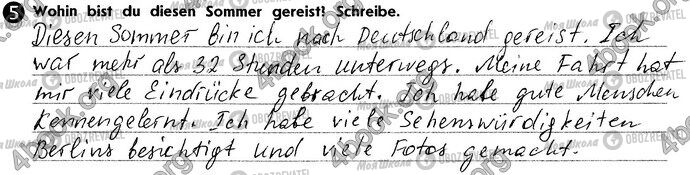 5 Wohin bist du diesen Sommer gereist? Schreibe.
Diesen Sommer bin ich nach Deutschland gereist. Ich
war mehr als 32 Stunden unterwegs. Meine Fahrt hat
mir viele Eindrücke gebracht. Ich habe gute Menschen
kennengelernt. Ich habe viele Sehenswürdigkeiten
Berlins besichtigt und viele Fotos gemacht.